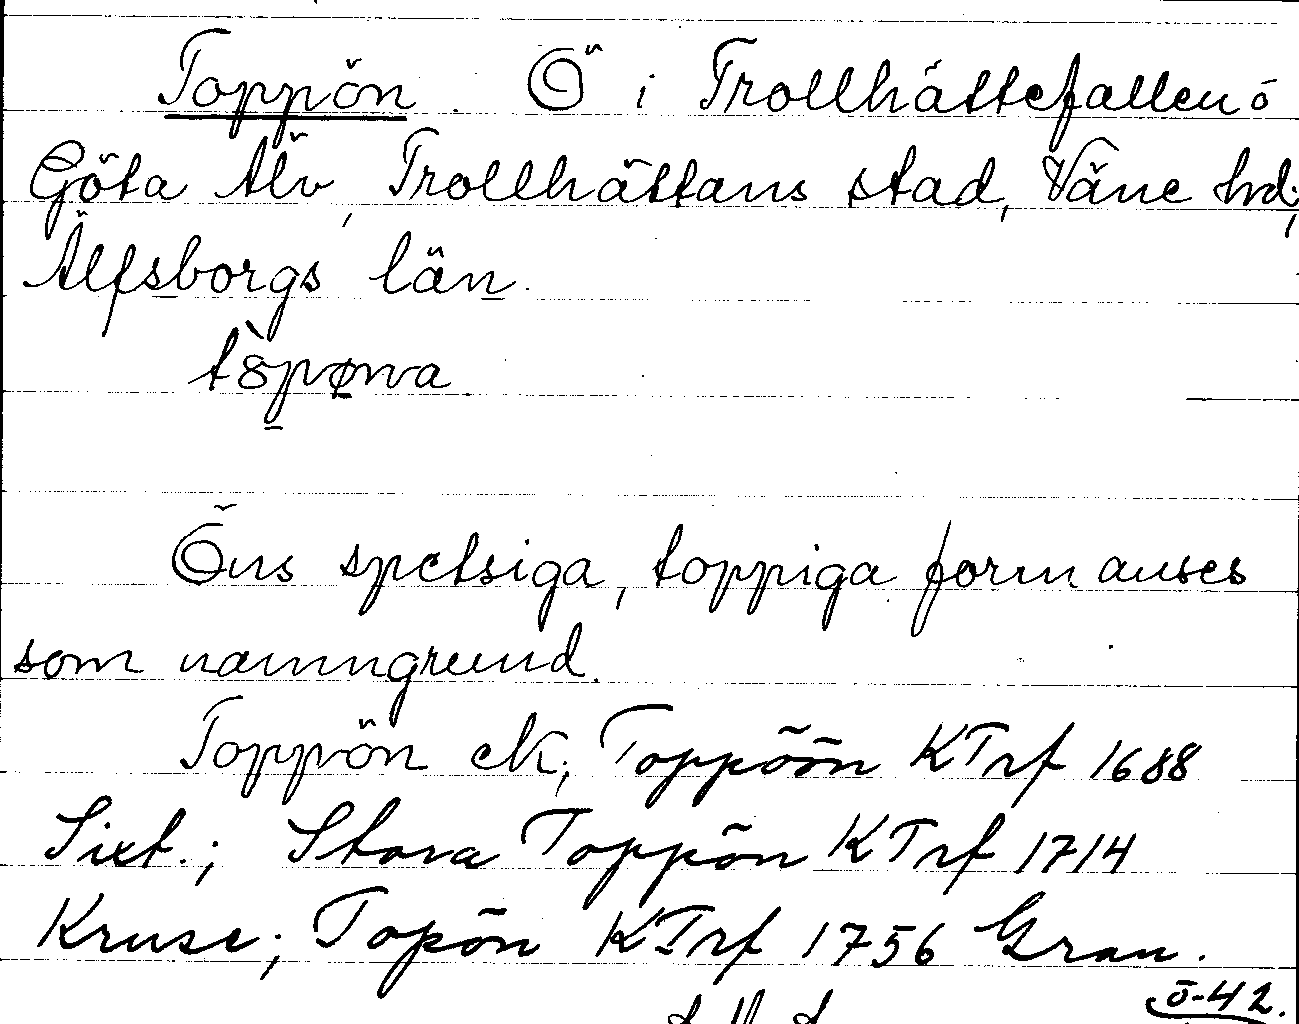 Toppön. Ö i Trollhättefallen i
Göta Älv, Trollhättans stad, Väne hd,
Älfsborgs län.
tòpøna
Öns spetsiga, toppiga form anses
som namngrund.
Toppön eK; Toppöön KTrf 1688
Sixt.; Stora Toppön KTrf 1714
Kruse; Topön KTrf 1756 Gran.
ö-42.